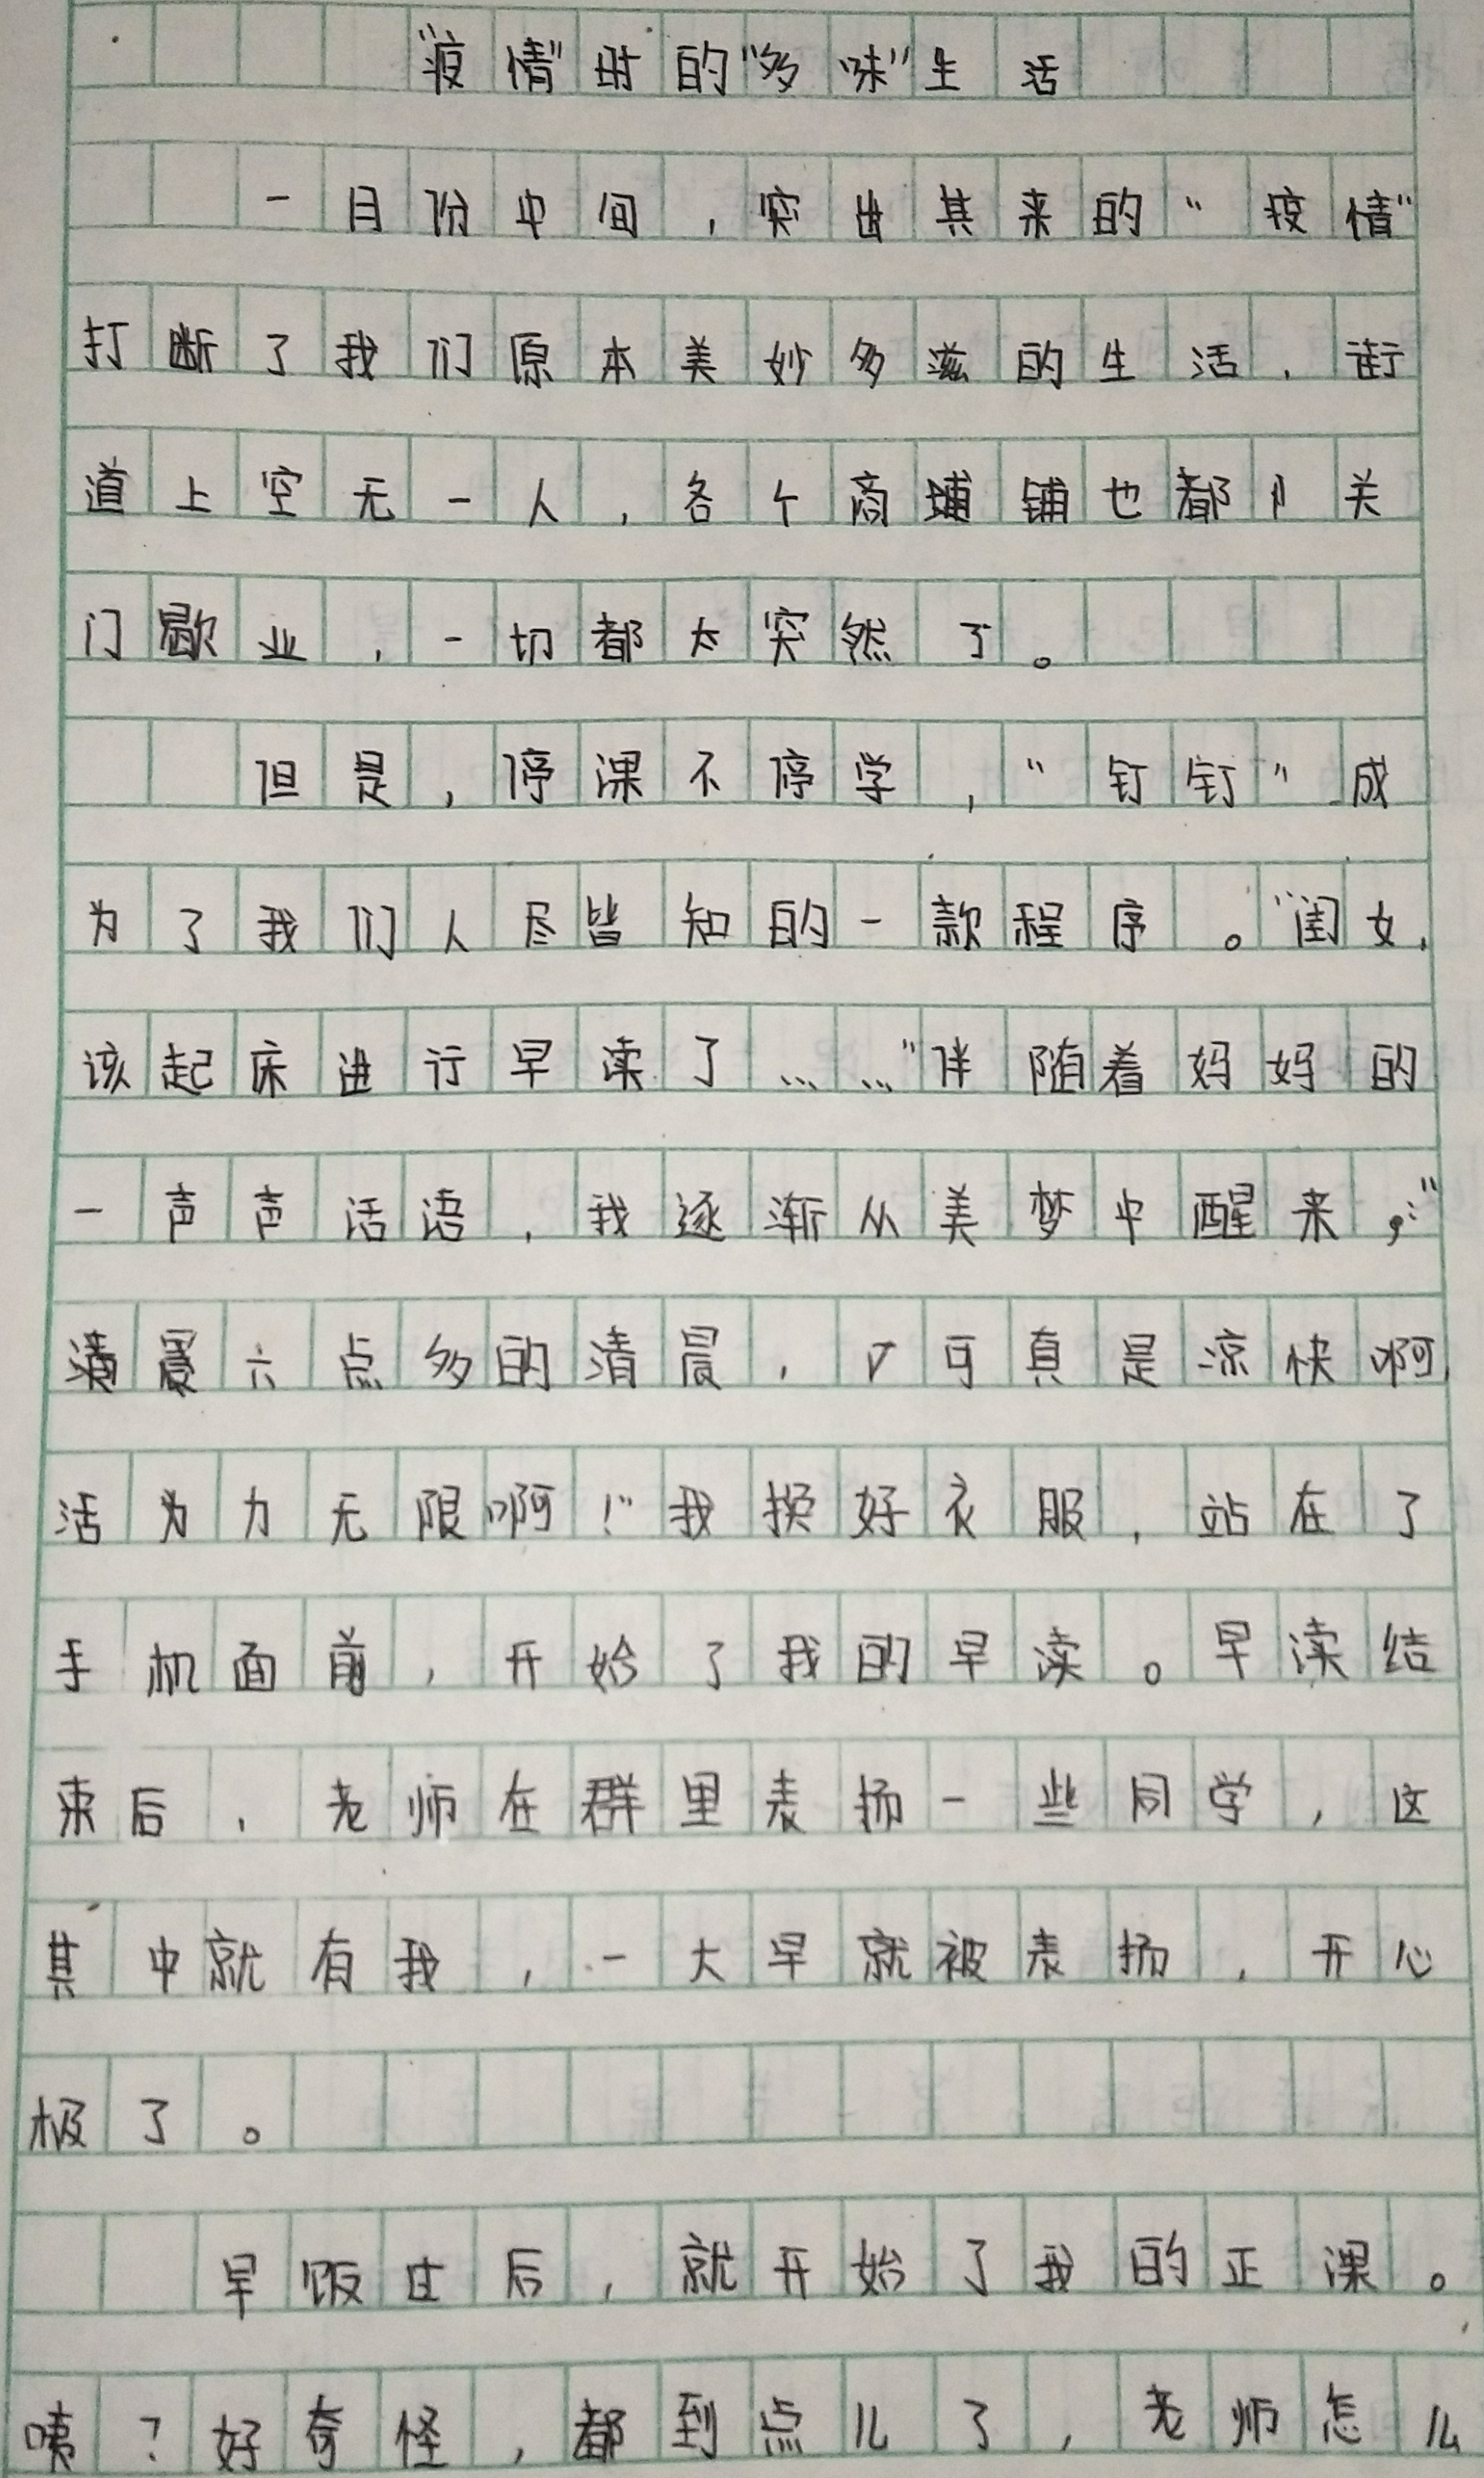 “疫情”时的“多味”生活
一月份中间，突出其来的“疫情”
打断了我们原本美妙多滋的生活，街
道上空无一人，各个商铺也都关
门歇业，一切都太突然了。
但是，停课不停学，“钉钉”成
为了我们人尽皆知的一款程序。“闺女，
该起床进行早读了……”伴随着妈妈的
一声声话语，我逐渐从美梦中醒来，：“
六点多的清晨，可真是凉快啊，
活力无限啊！”我换好衣服，站在了
手机面前，开始了我的早读。早读结
束后，老师在群里表扬一些同学，这
其中就有我，一大早就被表扬，开心
极了。
早饭过后，就开始了我的正课。
咦？好奇怪，都到点儿了，老师怎么